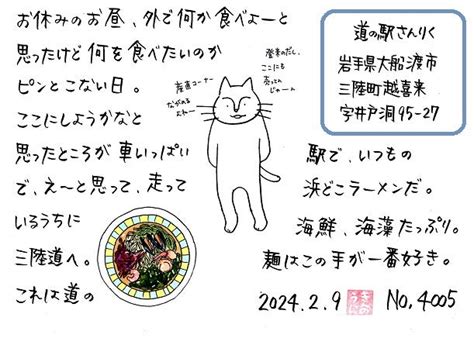 お休みのお昼、外で何か食べよーと
思ったけど何を食べたいのか
ピンとこない日。
ここにしようかなと
思ったところが車いっぱい
で、え〜と思って、走って
いるうちに
三陸道へ。
これは道の
産直コーナー
ながめる
ここにも
売っとん
じゃーん
道の駅さんりく
岩手県大船渡市
三陸町越喜来
字井戸洞95-27
駅で、いつもの
浜どこラーメンだ。
海鮮、海藻たっぷり。
麺はこの手が一番好き。
2024.2.9 No,4005